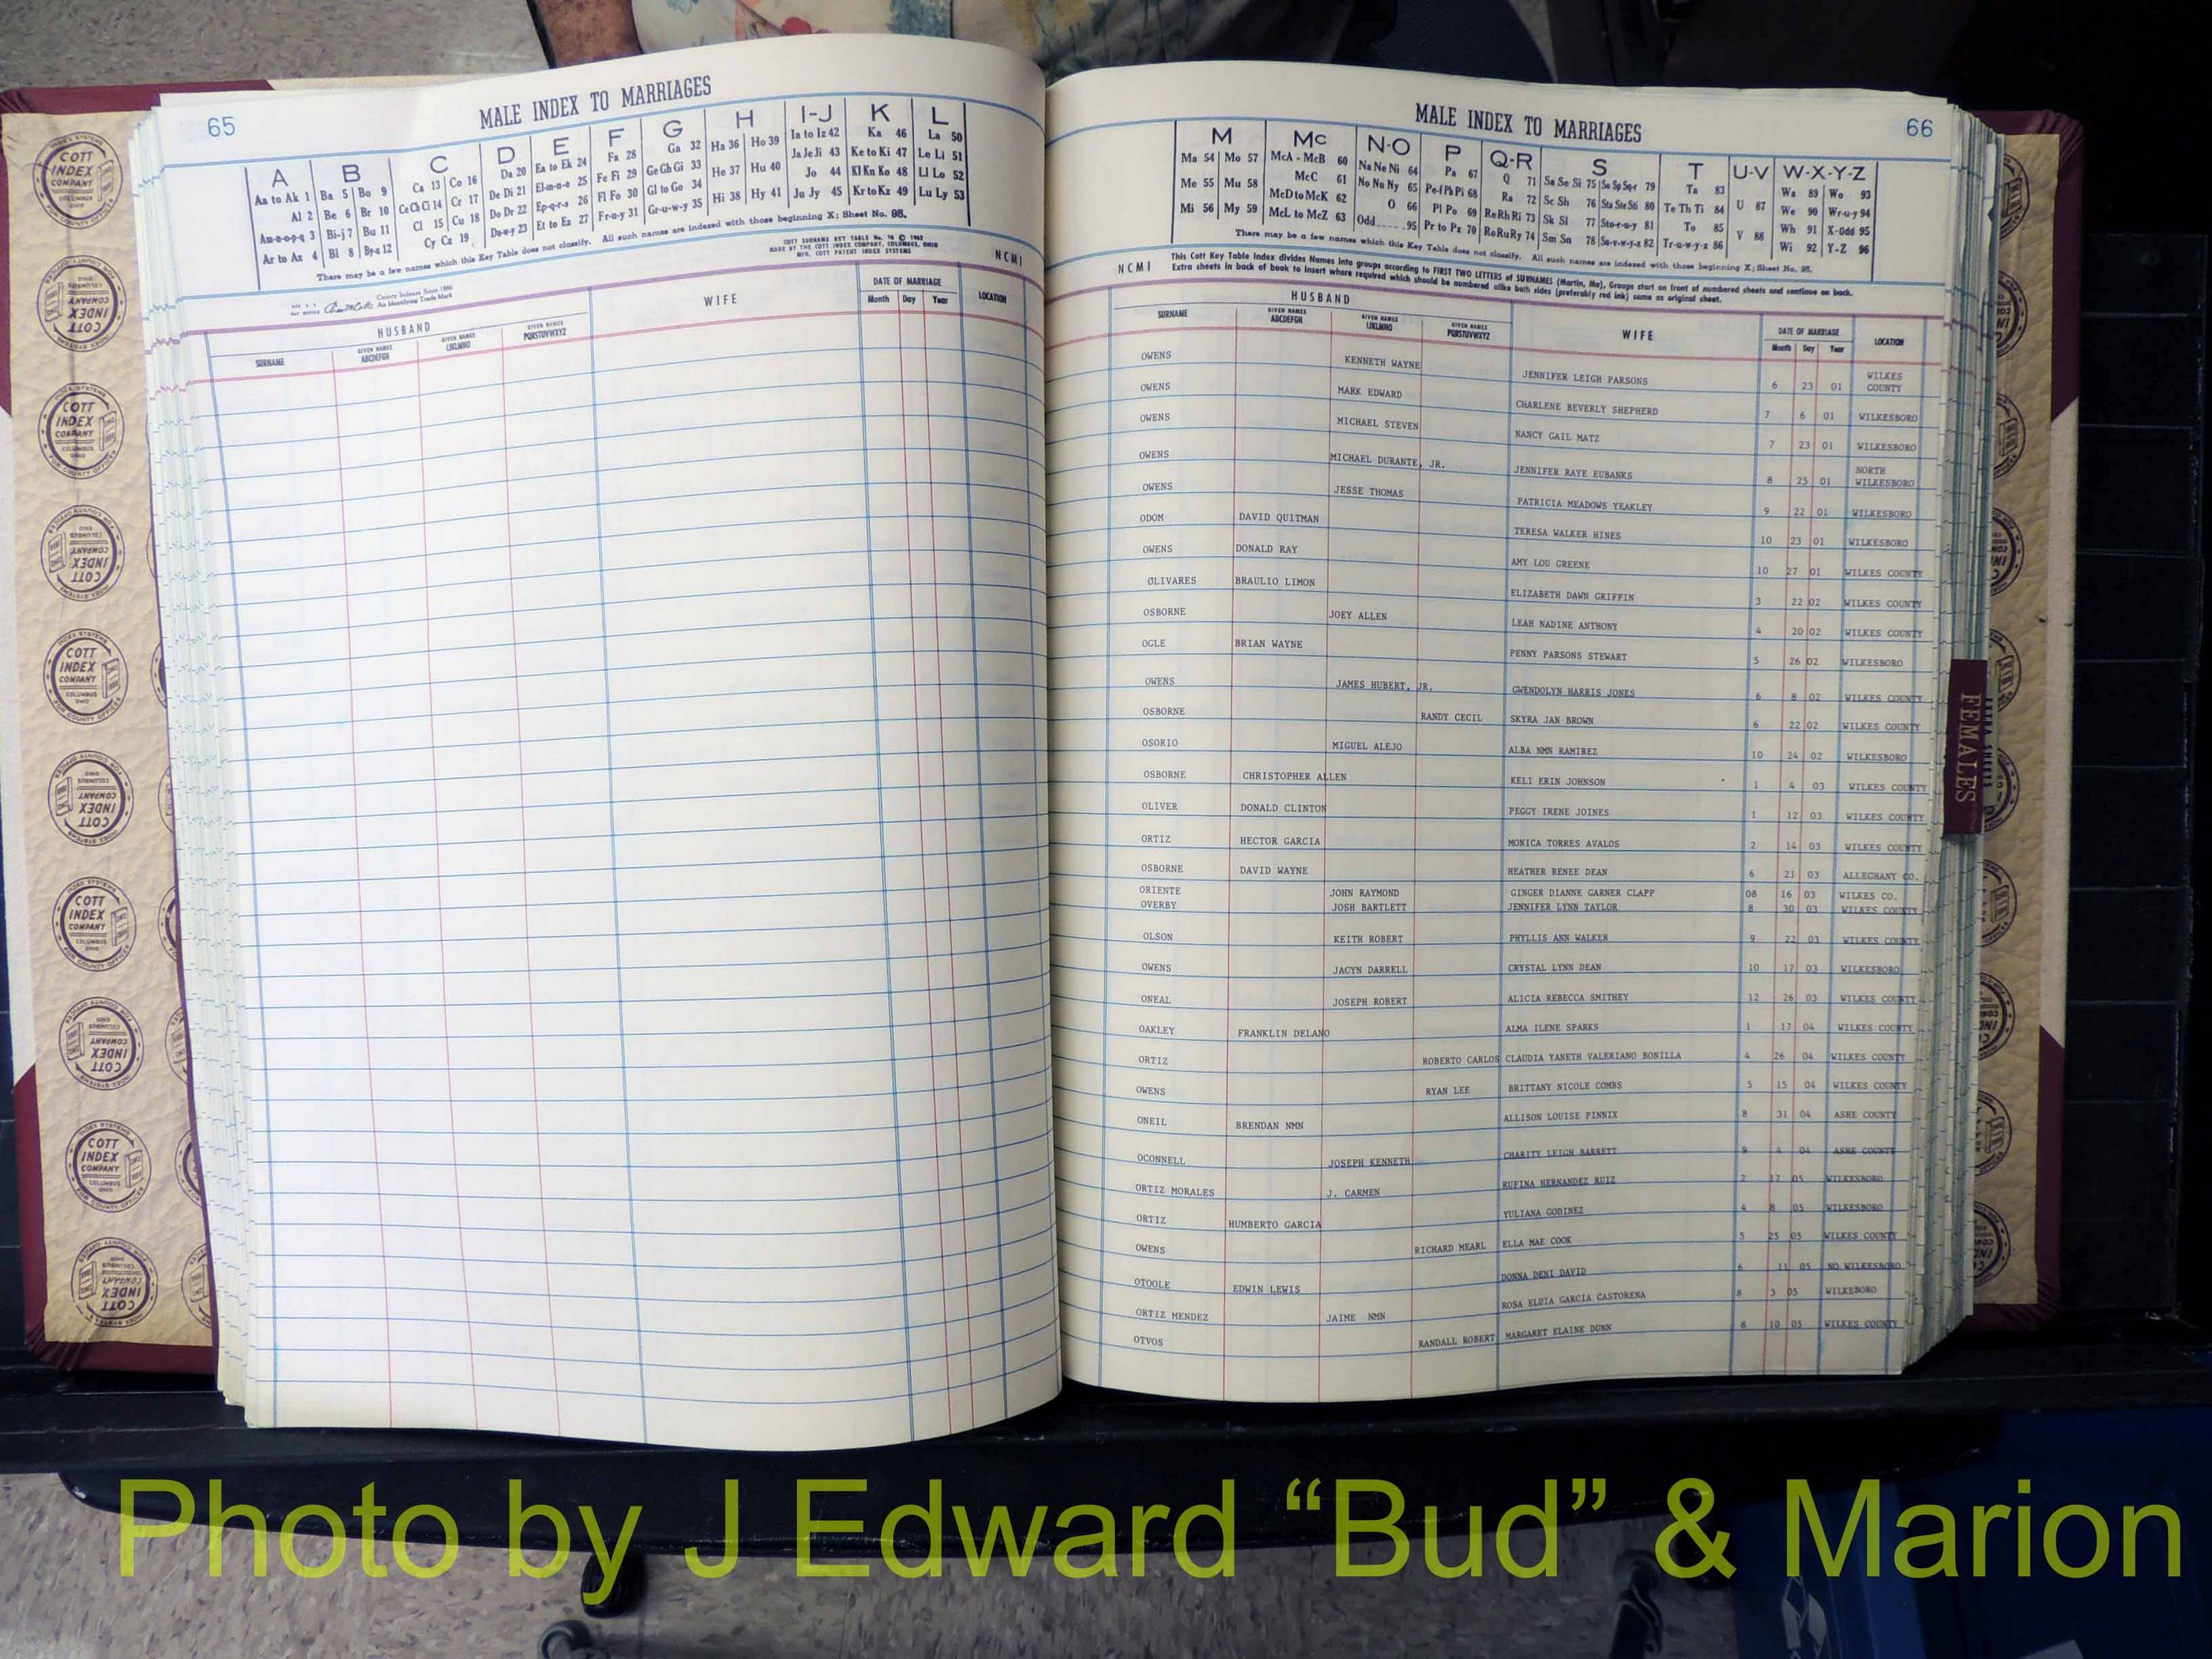 65
MALE INDEX TO MARRIAGES
A B C D E F G H I-J K L
Aa to Ak 1 Ba 5 Bo 9 Ca 13 Co 16 Da 20 Ea to Ek 24 Fa 28 Ga 32 Ha 36 Ho 39 Ia to Iz 42 Ka 46 La 50
Al 2 Be 6 Br 10 Ce Ch Ci 14 Cr 17 De Di 21 El-m-n-o 25 Fe Fi 29 Ge Gh Gi 33 He 37 Hu 40 Ja Je Ji 43 Ke to Ki 47 Le Li 51
Am-n-o-p-q 3 Bi-j 7 Bu 11 Cl 15 Cu 18 Do Dr 22 Ep-q-r-s 26 Fl Fo 30 Gl to Go 34 Hi 38 Hy 41 Jo 44 Kl Kn Ko 48 Ll Lo 52
Ar to Az 4 Bl 8 By-z 12 Cy Cz 19 Du-w-y 23 Et to Ez 27 Fr-u-y 31 Gr-u-w-y 35 Ju Jy 45 Kr to Kz 49 Lu Ly 53
There may be a few names which this Key Table does not classify. All such names are indexed with those beginning X; Sheet No. 95.
COTT SURNAME KEY TABLE
MADE BY THE COTT INDEX COMPANY, COLUMBUS, OHIO
MFG. COTT PATENT INDEX SYSTEMS
NCMI
County Indexes Since 1888
An Identifying Trade Mark
HUSBAND WIFE DATE OF MARRIAGE LOCATION
SURNAME GIVEN NAMES ABCDEFGH GIVEN NAMES IJKLMNO GIVEN NAMES PQRSTUVWXYZ Month Day Year
MALE INDEX TO MARRIAGES
66
M Mc N-O P Q-R S T U-V W-X-Y-Z
Ma 54 Mo 57 McA - McB 60 Na Ne Ni 64 Pa 67 Q 71 Sa Se Si 75 So Sp Sq-r 79 Ta 83 U 87 Wa 89 Wo 93
Me 55 Mu 58 McC 61 No Nu Ny 65 Pe-f Ph Pi 68 Ra 72 Sc Sh 76 Sta Ste Sti 80 Te Th Ti 84 V 88 We 90 Wr-u-y 94
Mi 56 My 59 McD to McK 62 O 66 Pl Po 69 Re Rh Ri 73 Sk Sl 77 Sto-r-u-y 81 To 85 Wh 91 X-Odd 95
McL to McZ 63 Odd 95 Pr to Pz 70 Ro Ru Ry 74 Sm Sn 78 Su-v-w-y-z 82 Tr-u-w-y-z 86 Wi 92 Y-Z 96
There may be a few names which this Key Table does not classify. All such names are indexed with those beginning X; Sheet No. 95.
NCMI
This Cott Key Table Index divides Names into groups according to FIRST TWO LETTERS of SURNAMES (Martin, Ma), Groups start on front of numbered sheets and continue on back.
Extra sheets in back of book to insert where required which should be numbered alike both sides (preferably red ink) same as original sheet.
HUSBAND WIFE DATE OF MARRIAGE LOCATION
SURNAME GIVEN NAMES ABCDEFGH GIVEN NAMES IJKLMNO GIVEN NAMES PQRSTUVWXYZ Month Day Year
OWENS KENNETH WAYNE JENNIFER LEIGH PARSONS 6 23 01 WILKES COUNTY
OWENS MARK EDWARD CHARLENE BEVERLY SHEPHERD 7 6 01 WILKESBORO
OWENS MICHAEL STEVEN NANCY GAIL MATZ 7 23 01 WILKESBORO
OWENS MICHAEL DURANTE, JR. JENNIFER RAYE EUBANKS 8 25 01 NORTH WILKESBORO
OWENS JESSE THOMAS PATRICIA MEADOWS YEAKLEY 9 22 01 WILKESBORO
ODOM DAVID QUITMAN TERESA WALKER HINES 10 23 01 WILKESBORO
OWENS DONALD RAY AMY LOU GREENE 10 27 01 WILKES COUNTY
OLIVARES BRAULIO LIMON ELIZABETH DAWN GRIFFIN 3 22 02 WILKES COUNTY
OSBORNE JOEY ALLEN LEAH NADINE ANTHONY 4 20 02 WILKES COUNTY
OGLE BRIAN WAYNE PENNY PARSONS STEWART 5 26 02 WILKESBORO
OWENS JAMES HUBERT, JR. GWENDOLYN HARRIS JONES 6 8 02 WILKES COUNTY
OSBORNE RANDY CECIL SKYRA JAN BROWN 6 22 02 WILKES COUNTY
OSORIO MIGUEL ALEJO ALBA NMN RAMIREZ 10 24 02 WILKESBORO
OSBORNE CHRISTOPHER ALLEN KELI ERIN JOHNSON 1 4 03 WILKES COUNTY
OLIVER DONALD CLINTON PEGGY IRENE JOINES 1 12 03 WILKES COUNTY
ORTIZ HECTOR GARCIA MONICA TORRES AVALOS 2 14 03 WILKES COUNTY
OSBORNE DAVID WAYNE HEATHER RENEE DEAN 6 21 03 ALLEGHANY CO.
ORIENTE JOHN RAYMOND GINGER DIANNE GARNER CLAPP 08 16 03 WILKES CO.
OVERBY JOSH BARTLETT JENNIFER LYNN TAYLOR 8 30 03 WILKES COUNTY
OLSON KEITH ROBERT PHYLLIS ANN WALKER 9 22 03 WILKES COUNTY
OWENS JACYN DARRELL CRYSTAL LYNN DEAN 10 17 03 WILKESBORO
ONEAL JOSEPH ROBERT ALICIA REBECCA SMITHEY 12 26 03 WILKES COUNTY
OAKLEY FRANKLIN DELANO ALMA ILENE SPARKS 1 17 04 WILKES COUNTY
ORTIZ ROBERTO CARLOS CLAUDIA YANETH VALERIANO BONILLA 4 26 04 WILKES COUNTY
OWENS RYAN LEE BRITTANY NICOLE COMBS 5 15 04 WILKES COUNTY
ONEIL BRENDAN NMN ALLISON LOUISE PINNIX 8 31 04 ASHE COUNTY
OCONNELL JOSEPH KENNETH CHARITY LEIGH BARRETT 9 4 04 ASHE COUNTY
ORTIZ MORALES J. CARMEN RUFINA HERNANDEZ RUIZ 2 17 05 WILKESBORO
ORTIZ HUMBERTO GARCIA YULIANA GODINEZ 4 8 05 WILKESBORO
OWENS RICHARD MEARL ELLA MAE COOK 5 25 05 WILKES COUNTY
OTOOLE EDWIN LEWIS DONNA DENI DAVID 6 11 05 NO WILKESBORO
ORTIZ MENDEZ JAIME NMN ROSA ELUIA GARCIA CASTORENA 8 3 05 WILKEBORO
OTVOS RANDALL ROBERT MARGARET ELAINE DUNN 8 10 05 WILKES COUNTY
FEMALES
COTT INDEX COMPANY
COLUMBUS OHIO
INDEX SYSTEMS
FOR COUNTY OFFICES
Photo by J Edward “Bud” & Marion